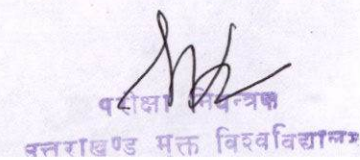 परीक्षा नियन्त्रक
उत्तराखण्ड मुक्त विश्वविद्यालय